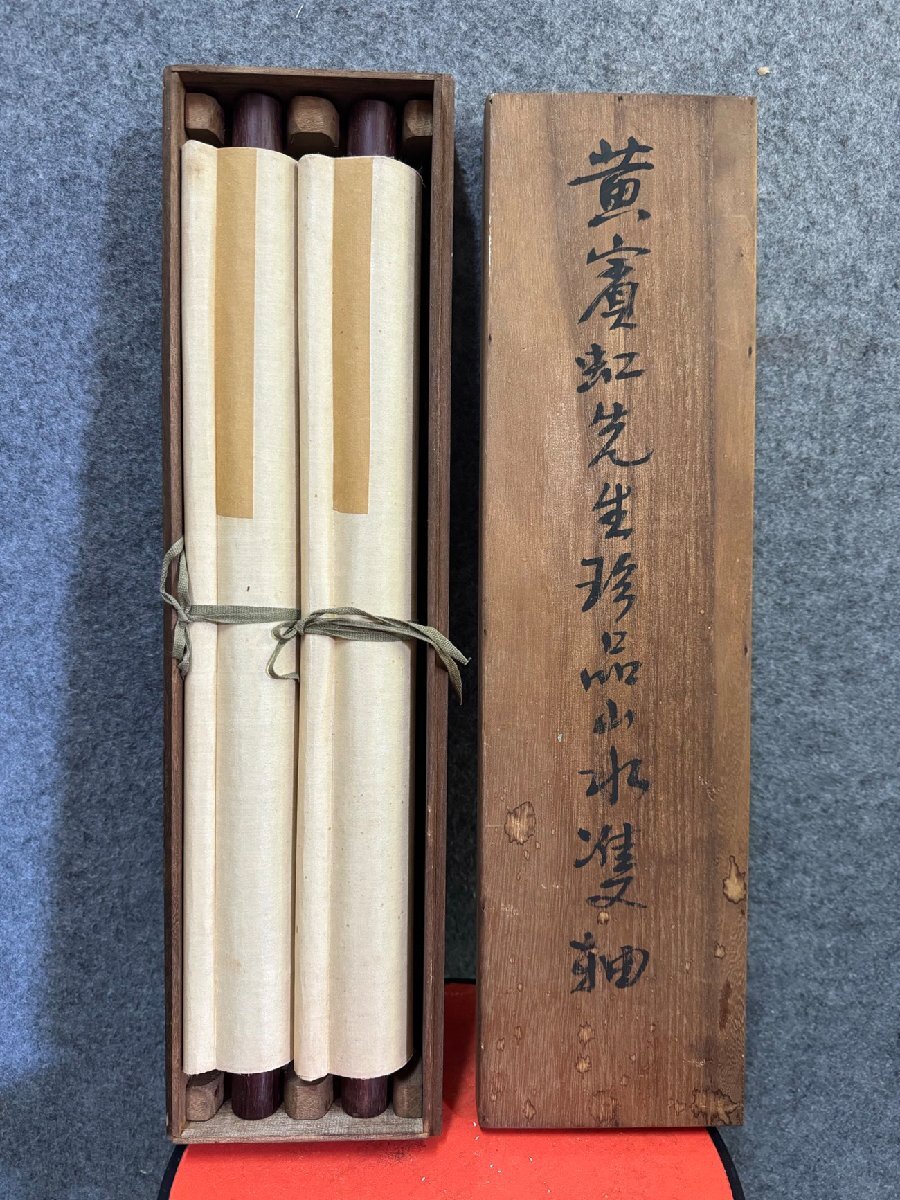 黄賓虹先生珍品山水雙軸